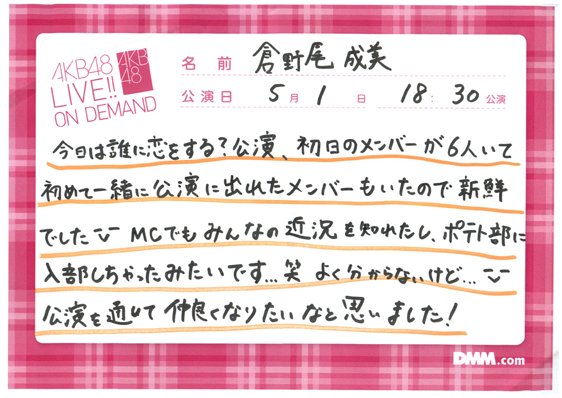 AKB48
LIVE!!
ON DEMAND
AKB
48
名前 倉野尾 成美
公演日 5月1日 18:30公演
今日は誰に恋をする?公演、初日のメンバーが6人いて
初めて一緒に公演に出れたメンバーもいたので新鮮
でした MCでもみんなの近況を知れたし、ポテト部に
入部しちゃったみたいです...笑 よく分からないけど...
公演を通して仲良くなりたいなと思いました!
DMM.com